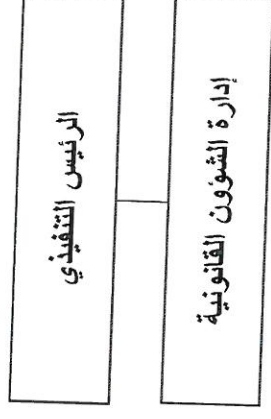 الرئيس التنفيذي
إدارة الشؤون القانونية